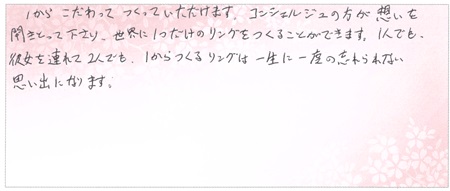 1から こだわって つくっていただけます。コンシェルジュの方が 想いを
聞きとって下さり、世界に1つだけのリングをつくることができます。1人でも、
彼女を連れて2人でも、1からつくるリングは一生に一度の忘れられない
思い出になります。